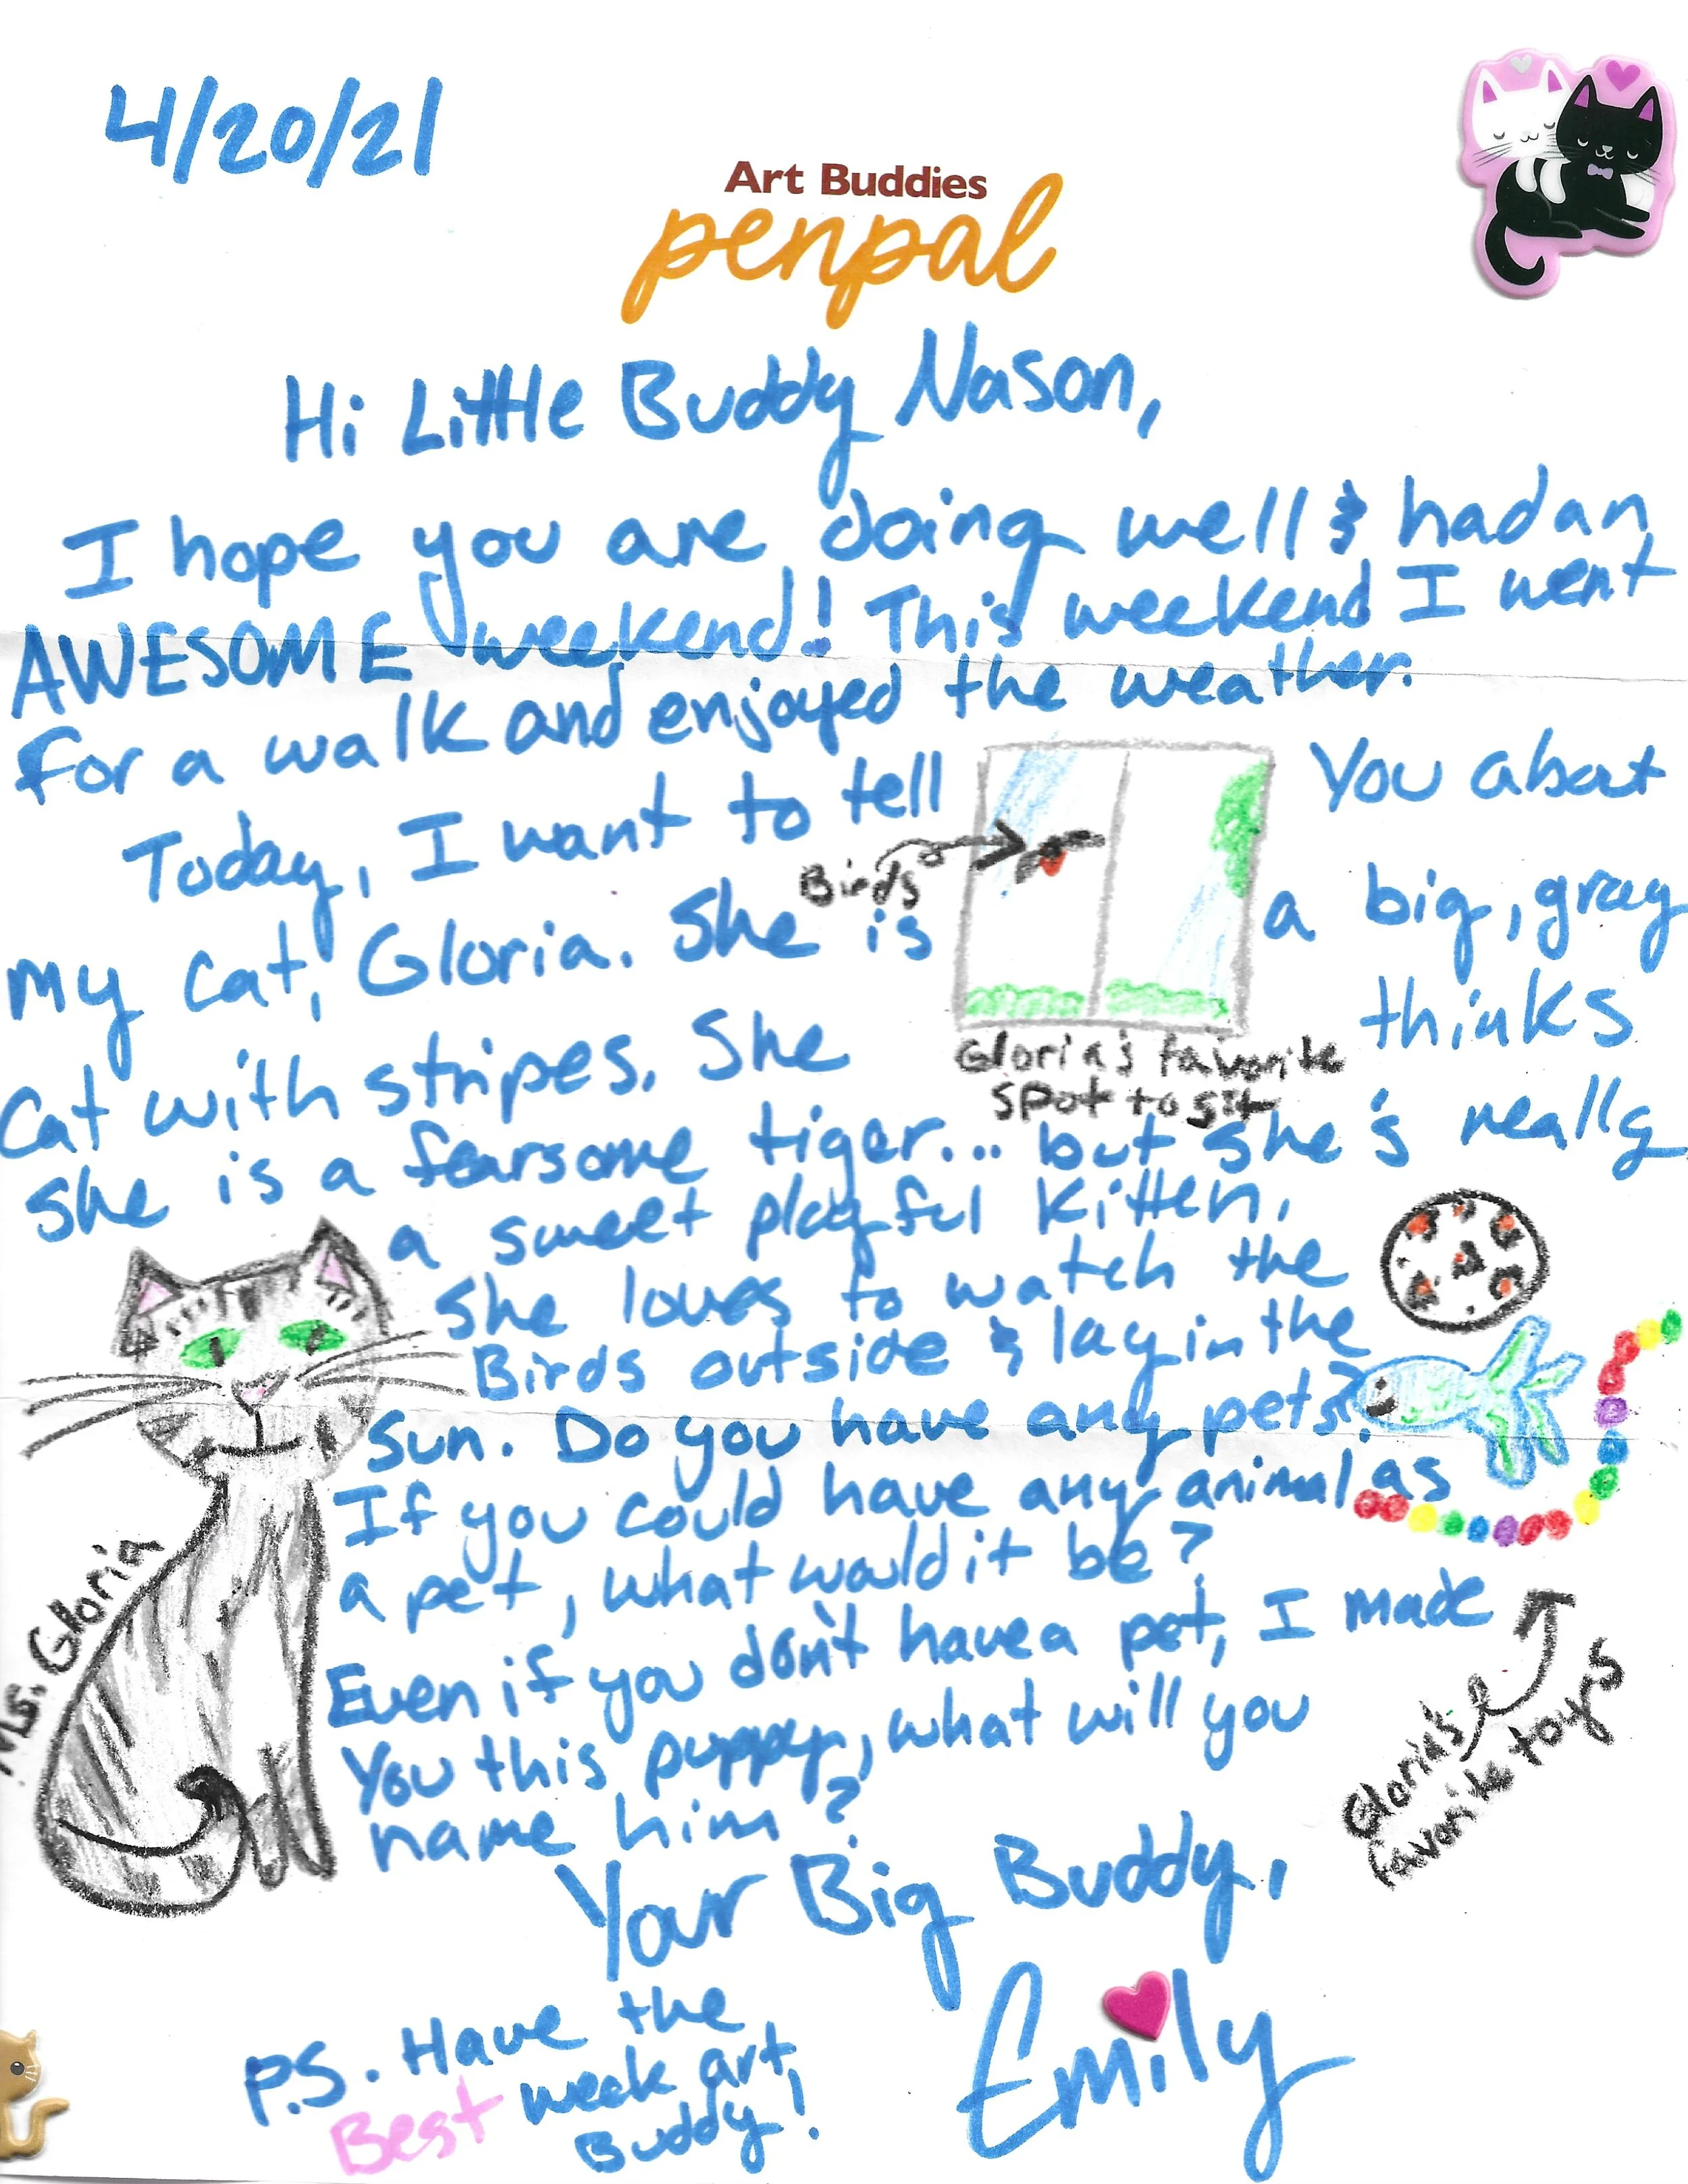 4/20/21
Art Buddies
penpal
Hi Little Buddy Nason,
I hope you are doing well & had an
AWESOME weekend! This weekend I went
for a walk and enjoyed the weather.
Today, I want to tell You about
Birds
my cat, Gloria. She is a big, gray
Cat with stripes. She thinks
Gloria's favorite
spot to sit
she is a fearsome tiger... but she's really
a sweet playful Kitten.
She loves to watch the
Birds outside & lay in the
sun. Do you have any pets?
If you could have any animal as
a pet, what would it be?
Even if you don't have a pet, I made
You this puppy, what will you
name him?
Ms. Gloria
Gloria's
favorite toys
Your Big Buddy,
Emily
P.S. Have the
Best week art
Buddy!